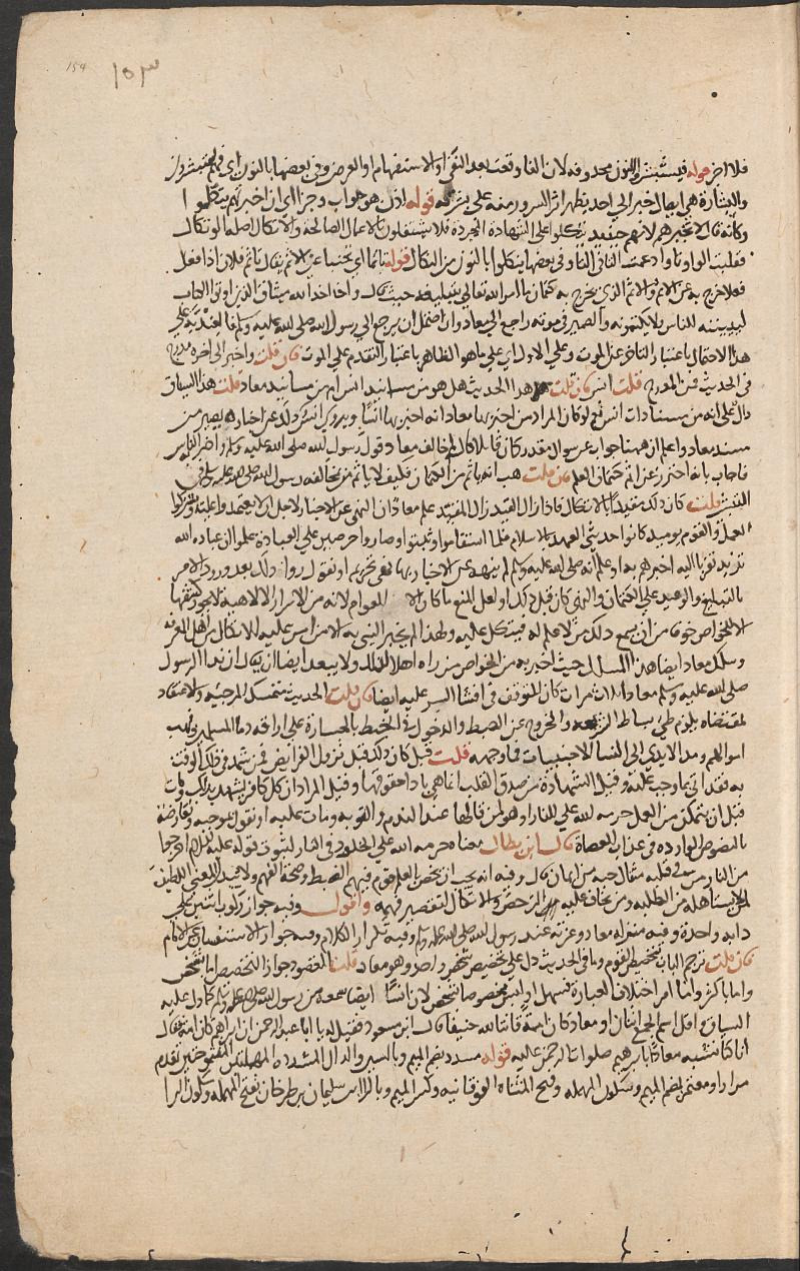 154 ١٥٣
فلا اخر قوله فيستبشروا النون محذوفه لان الفا وقعت بعد النفي او الاستفهام او العرض وفي بعضها بالنون اي فهم يستبشرون
والبشارة هي ايصال خبر الي احد يظهر اثر السرور منه على بشرته قوله اذن هو جواب وجزا اي ان اخبرتهم يتكلوا
وكانه قال لا تخبرهم لانهم حينئذ يتكلوا على الشهادة المجردة فلا يشتغلون بالاعمال الصالحة والاتكال اصله الاوتكال
فقلبت الواو تا وادغمت التا في التا وفي بعضها ينكلوا بالنون من النكال قوله تاثما اي تجنبا عن الاثم يقال تاثم فلان اذا فعل
فعلا خرج به عن الاثم والاثم الذي يخرج به كتمان ما امر الله تعالى بتبليغه حيث قال واذ اخذ الله ميثاق الذين اوتوا الكتاب
ليبيننه للناس ولا يكتمونه والضمير في موته راجع الى معاذ وان احتمل ان يرجع الى رسول الله صلى الله عليه وسلم فالعندية على
هذا الاحتمال باعتبار التاخر عن الموت وعلى الاول اي على ما هو الظاهر باعتبار التقدم على الموت فان قلت واخبر الى اخره مدرج
في الحديث فمن المدرج قلت انس فان قلت هذا الحديث هل هو من مسانيد انس ام من مسانيد معاذ قلت هذا السياق
دال على انه من مسندات انس نعم لو كان المراد من اخبر بها معاذ انه اخبر بها انسا ويروي انس ذلك عن اخباره يصير من
مسند معاذ واعلم ان ههنا جواب عن سوال مقدر كان قايلا قال لم خالف معاذ قول رسول الله صلى الله عليه وسلم واخبر الناس
فاجاب بانه احترز عن اثم كتمان العلم فان قلت هب انه تاثم من الكتمان فكيف لا ياثم من مخالفه رسول الله صلى الله عليه وسلم في
التبشير قلت كان ذلك مقيدا بالاتكال فاذا زال القيد زال المقيد علم معاذ ان النهي عن الاخبار لاجل ان لا يعتمدوا عليه ويتركوا
العمل والقوم يوميذ كانوا حديثي العهد بالاسلام فلما استقاموا وثبتوا وصاروا حريصين على العبادة علموا ان عبادة الله
تزيد تقربا اليه اخبرهم به او علم انه صلى الله عليه وسلم لم ينهه عن الاخبار بها نهي تحريم او نقول رواه ذلك بعد ورود الامر
بالتبليغ والوعيد على الكتمان والنهي كان قبل ذلك او لعل المنع ما كان الا للعوام لانه من الاسرار الالاهية لا يجوز كشفها
الا للخواص خوفا من ان يسمع ذلك من لا علم له فيتكل عليه ولهذا لم يخبر النبي به الا من امن عليه الاتكال من اهل المعرفة
وسلك معاذ ايضا هذا المسلك حيث اخبر به من الخواص من راه اهلا لذلك ولا يبعد ايضا ان يقال ان ندا الرسول
صلى الله عليه وسلم معاذا ثلاث مرات كان للتوقف في افشا السر عليه ايضا فان قلت الحديث متمسك المرجية والاعتقاد
لمقتضاه يلزم طي بساط الشريعة والخروج عن الضبط والدخول في الخبط بالجسارة على اراقة دما المسلمين ونهب
اموالهم ومد الايدي الى النسا الاجنبيات فما وجهه قلت قيل كان ذلك قبل نزول الفرايض فمن شهد في ذلك الوقت
به فقد اتى بما وجب عليه وقيل الشهادة من صدق القلب انما هي بادا حقوقها وقيل المراد ان كل كافر يشهد بذلك ومات
قبل ان يتمكن من العمل حرمه الله على النار او هو لمن قالها عند الندم والتوبه ومات عليه او نقول بموجبه ونعارضه
بالنصوص الوارده في عذاب العصاة قال ابن بطال معناه حرمه الله على الخلود في النار لثبوت قوله عليه السلام اخرجوا
من النار من في قلبه مثقال حبه من ايمان قال وفيه انه يجب ان يخص بالعلم قوم فيهم الضبط وصحة الفهم ولا يبذل المعنى اللطيف
لمن لا يستاهله من الطلبه ومن يخاف عليه الترخص والاتكال لتقصير فهمه واقول وفيه جواز ركوب اثنين على
دابه واحدة وفيه منزلة معاذ وعزته عند رسول الله صلى الله عليه وسلم وفيه تكرار الكلام وفيه جواز الاستفسار من الامام
فان قلت ترجم الباب بتخصيص القوم وما في الحديث دل على تخصيص شخص واحد وهو معاذ قلنا المقصود جواز التخصيص اما بشخص
واما باكثر واما امر اختلاف العبارة فسهل او ليس مخصوصا بشخص لان انسا ايضا سمعه من رسول الله صلى الله عليه وسلم كما دل عليه
السياق واقل اسم الجمع اثنان او معاذ كان امة قانتا لله حنيفا قال ابن مسعود فقيل له يا ابا عبد الرحمن ان ابراهيم كان امة فقال
انا كنا نشبه معاذا بابراهيم صلوات الرحمن عليه قوله مسدد بضم الميم وبالسين والدال المشدده المهملتين المفتوحتين تقدم
مرارا ومعتمر بضم الميم وسكون المهمله وفتح المثناه الفوقانيه وكسر الميم وبالرا ابن سليمان بن طرخان بفتح المهمله وسكون الرا